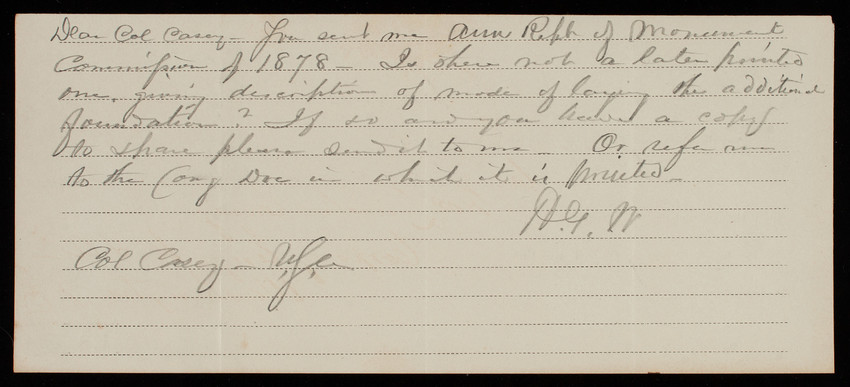 Dear Col Casey - You sent me Ann Rept of Monument
Commission of 1878 - Is there not a later printed
one, giving description of mode of laying the additional
foundation? If so and you have a copy
to spare please send it to me - Or refer me
to the Cong Doc in which it is printed -
H. G. W
Col Casey -